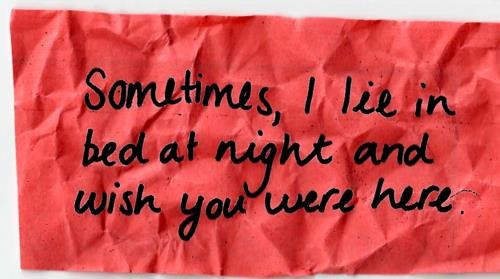 Sometimes, I lie in
bed at night and
wish you were here.